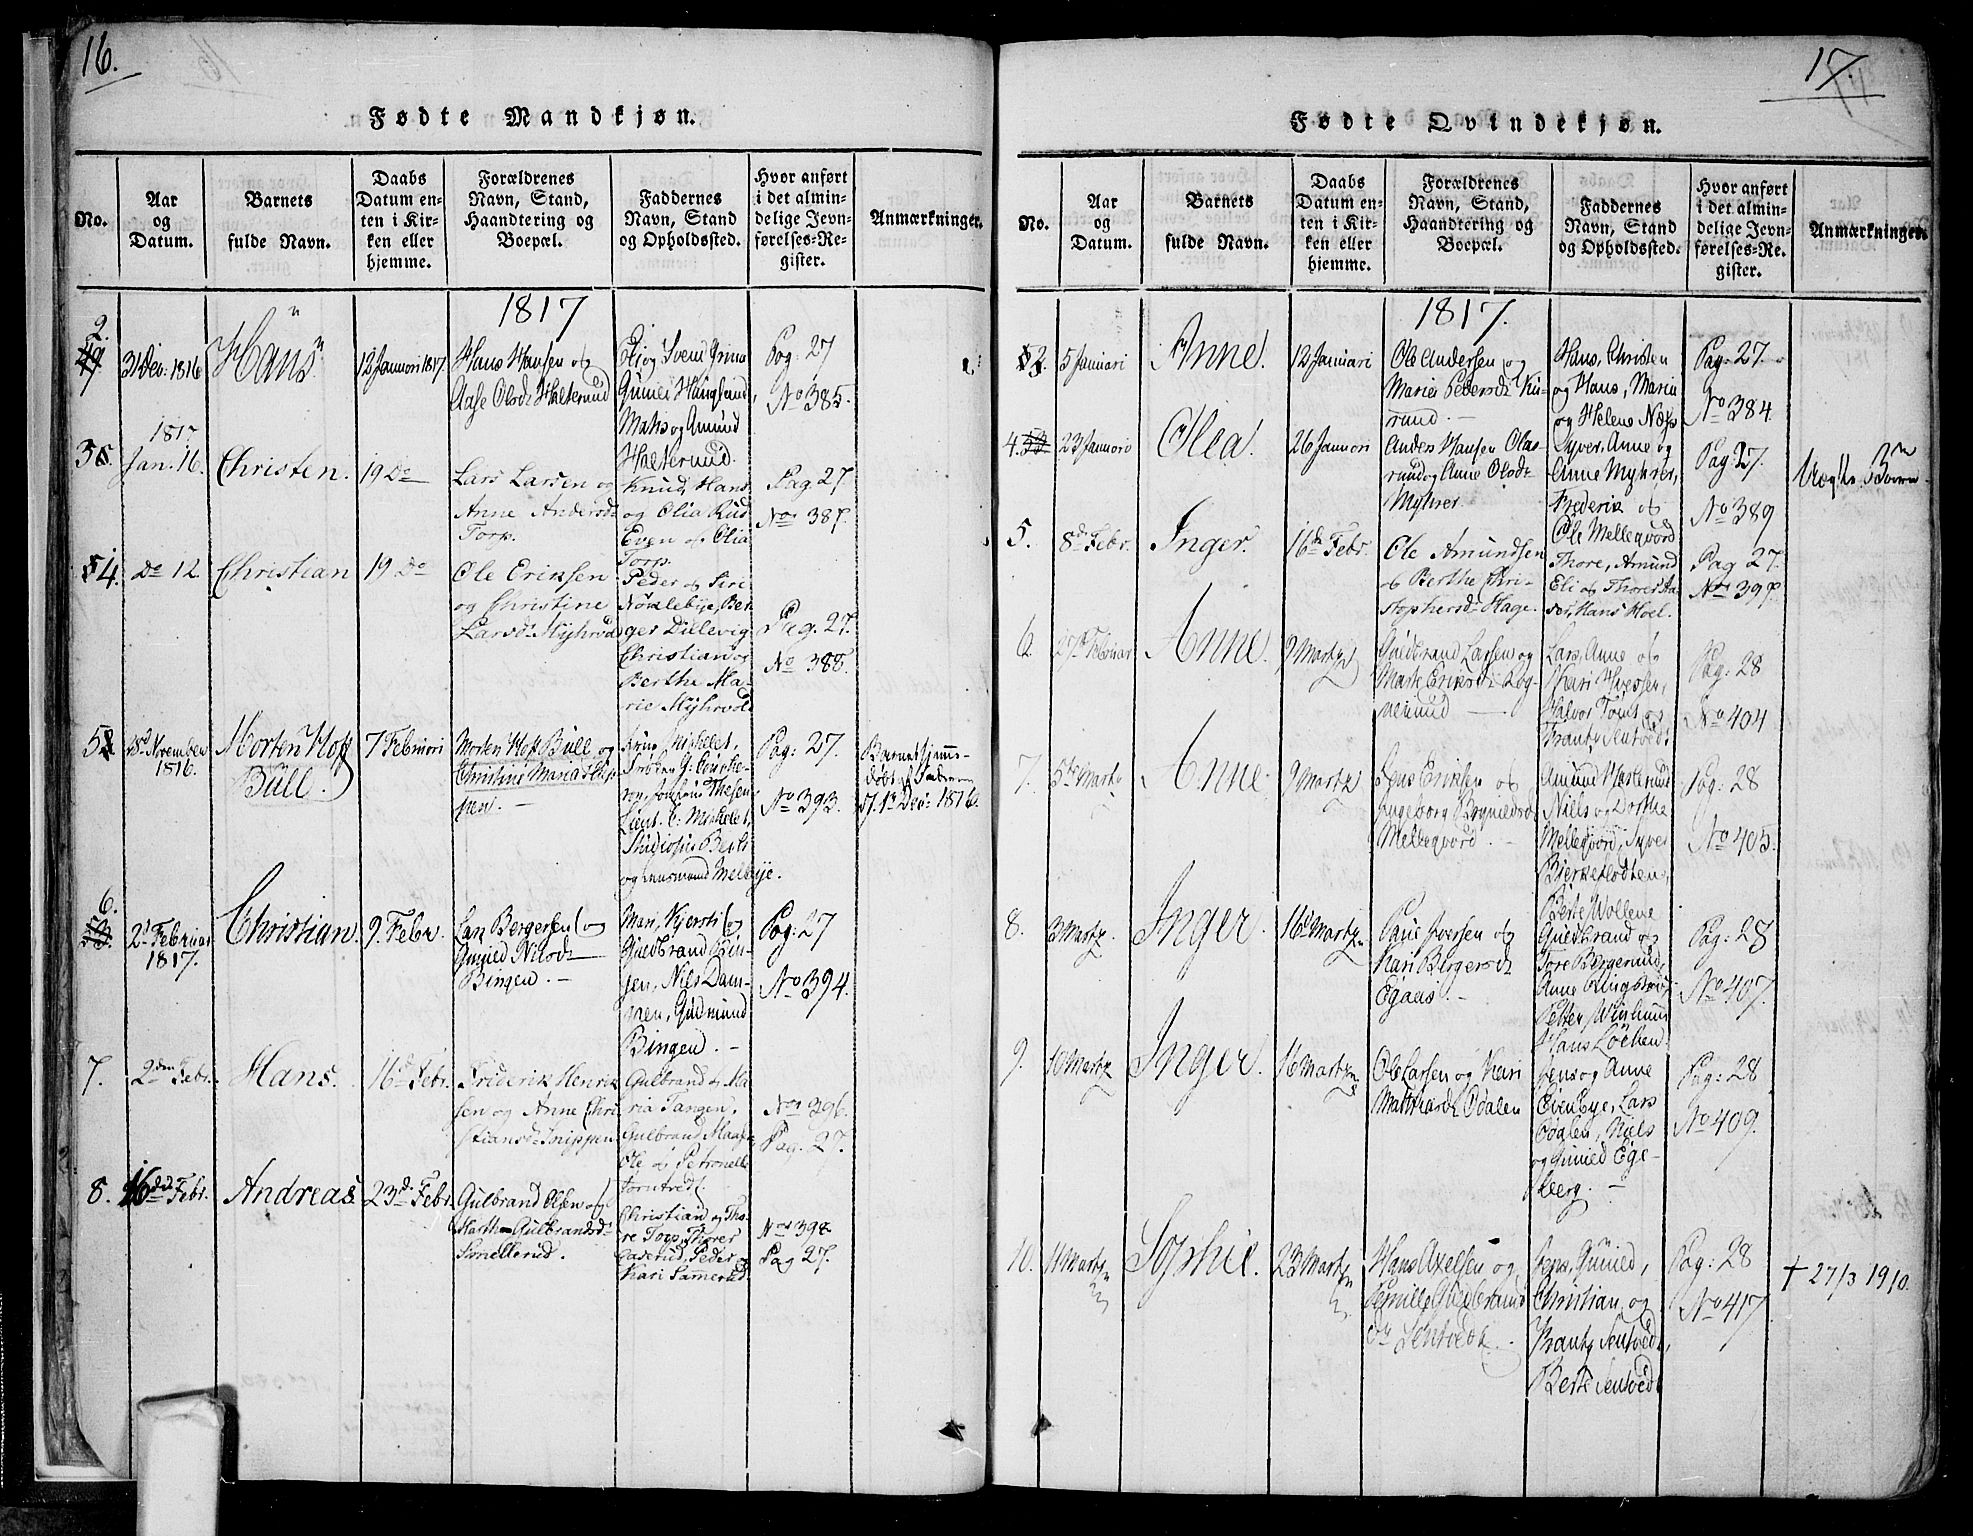 16.
Fødte Mandkjøn.
No.
Aar og Datum.
Barnets fulde Navn.
Daabs Datum enten i Kirken eller hjemme.
Forældrenes Navn, Stand, Haandtering og Boepæl.
Faddernes Navn, Stand og Opholdssted.
Hvor anført i det almindelige Jevnførelses-Register.
Anmærkninger.
1817
2.
31 Dec: 1816
Hans
12 Januari 1817.
Hans Hansen og
Aase Olsdr Halterud
Mats og Amund
Halterud.
Pag: 27
No 385.
3
1817
Jan. 16.
Christen.
19 Do
Lars Larsen og
Anne Andersdr
Torp.
Knud, Hans
og Olia Rud
Even og Olia
Torp.
Pag. 27.
No 387.
4.
Do 12
Christian
19 Do
Ole Eriksen
og Christine
Larsdr Myhrvold
Peder og Siri
Nøklebye, Ber-
ger Dillevig
Christian og
Berthe Ma-
rie Myhrvold
Pag. 27.
No 388.
5
18d November
1816.
Morten Hoff
Bull.
7 Februari
Morten Hoff Bull og
Pag: 27.
No 393.
Barnet hjemme-
døbt
1st Dec: 1816.
og Mellebye.
6.
2d Februar
1817.
Christian.
9. Febr.
Lars Bergersen og
Gunild Nilsdr
Bingen. -
Mari, Kjersti og
Guldbrand Bin-
gen, Niels Dam-
men, Gudmund
Bingen. -
Pag: 27
No 394.
7.
2den Febr.
Hans.
16d Febr.
Friderik Henrik
sen og Anne Chri
stiansdr Snippen.
Gulbrand og Ma
ria Tangen.
Gulbrand
Ole og Petronelle
Torntred.
No 396.
Pag. 27.
8.
16d Febr.
Andreas.
23d Febr.
Gulbrand Olsen og
Marthe Gulbrandsdr
Smellerud.
Christian og Tho-
re Torp, Thorer
Caserud, Peder og
Kari Sammerud.
No 398
Pag 27.
17.
Fødte Qvindekjøn.
No.
Aar og Datum.
Barnets fulde Navn.
Daabs Datum enten i Kirken eller hjemme.
Forældrenes Navn, Stand, Haandtering og Boepæl.
Faddernes Navn, Stand og Opholdssted.
Hvor anført i det almindelige Jevnførelses-Register.
Anmærkninger.
1817.
3.
5 Januari
Anne.
12 Januari
Ole Andersen og
Marie Pedersdr
Hans, Christen
og Hans, Maria
og Helene Næss
Pag: 27.
No 384
4.
23 Januari
Olea
26 Januari
Anders Hansen Olas-
rud og Anne Olsdr
Myhrer.
Syver, Anne og
Anne Myhrer,
Frederik og
Ole Mellegvord
Pag: 27.
No 389
5.
8d Febr.
Inger.
16de Febr.
Ole Amundsen
og Berthe Chri-
stophersdr Hage.
Thore, Amund
Eli og Thorer
Hans Hoel.
Pag 27.
No 397.
6.
27de Februar
Anne.
9 Marty
Guldbrand Larsen og
Marte Eriksdr
Lars, Anne og
Kari
Halvor Tomt og
Pag: 28
No 404
7.
5te Marty
Anne
9 Marty
Jens Eriksen og
Ingeborg Brynildsdr
Mellegvord. -
Amund Hasterud
Niels og Dorthe
Mellegvord, Syver
Bierkeslotten,
Pag: 28
No 405.
8.
3 Marty.
Inger.
16d Marty
Paul Iversen og
Kari Bergersdr
Egaas. -
Berte Wollene
Guldbrand og
Tore Bergerud,
Anne
Petter
Pag: 28
No 407.
9.
10 Marty
Inger
16 Marty
Ole Larsen og Kari
Odalen
Hans Løchen
Jens og Anne
Evenbye, Lars
Niels
og Gunild Ege-
berg. -
Pag: 28
No 409.
10.
11 Marty
Sophie.
23 Marty
Hans Axelsen og
Pernille Guldbrands
dr Sentvedt.
Jens, Gunild,
Christian og
Frantz Sentvedt,
Berte Sentvedt
Pag: 28
No 417.
† 27/3 1910.